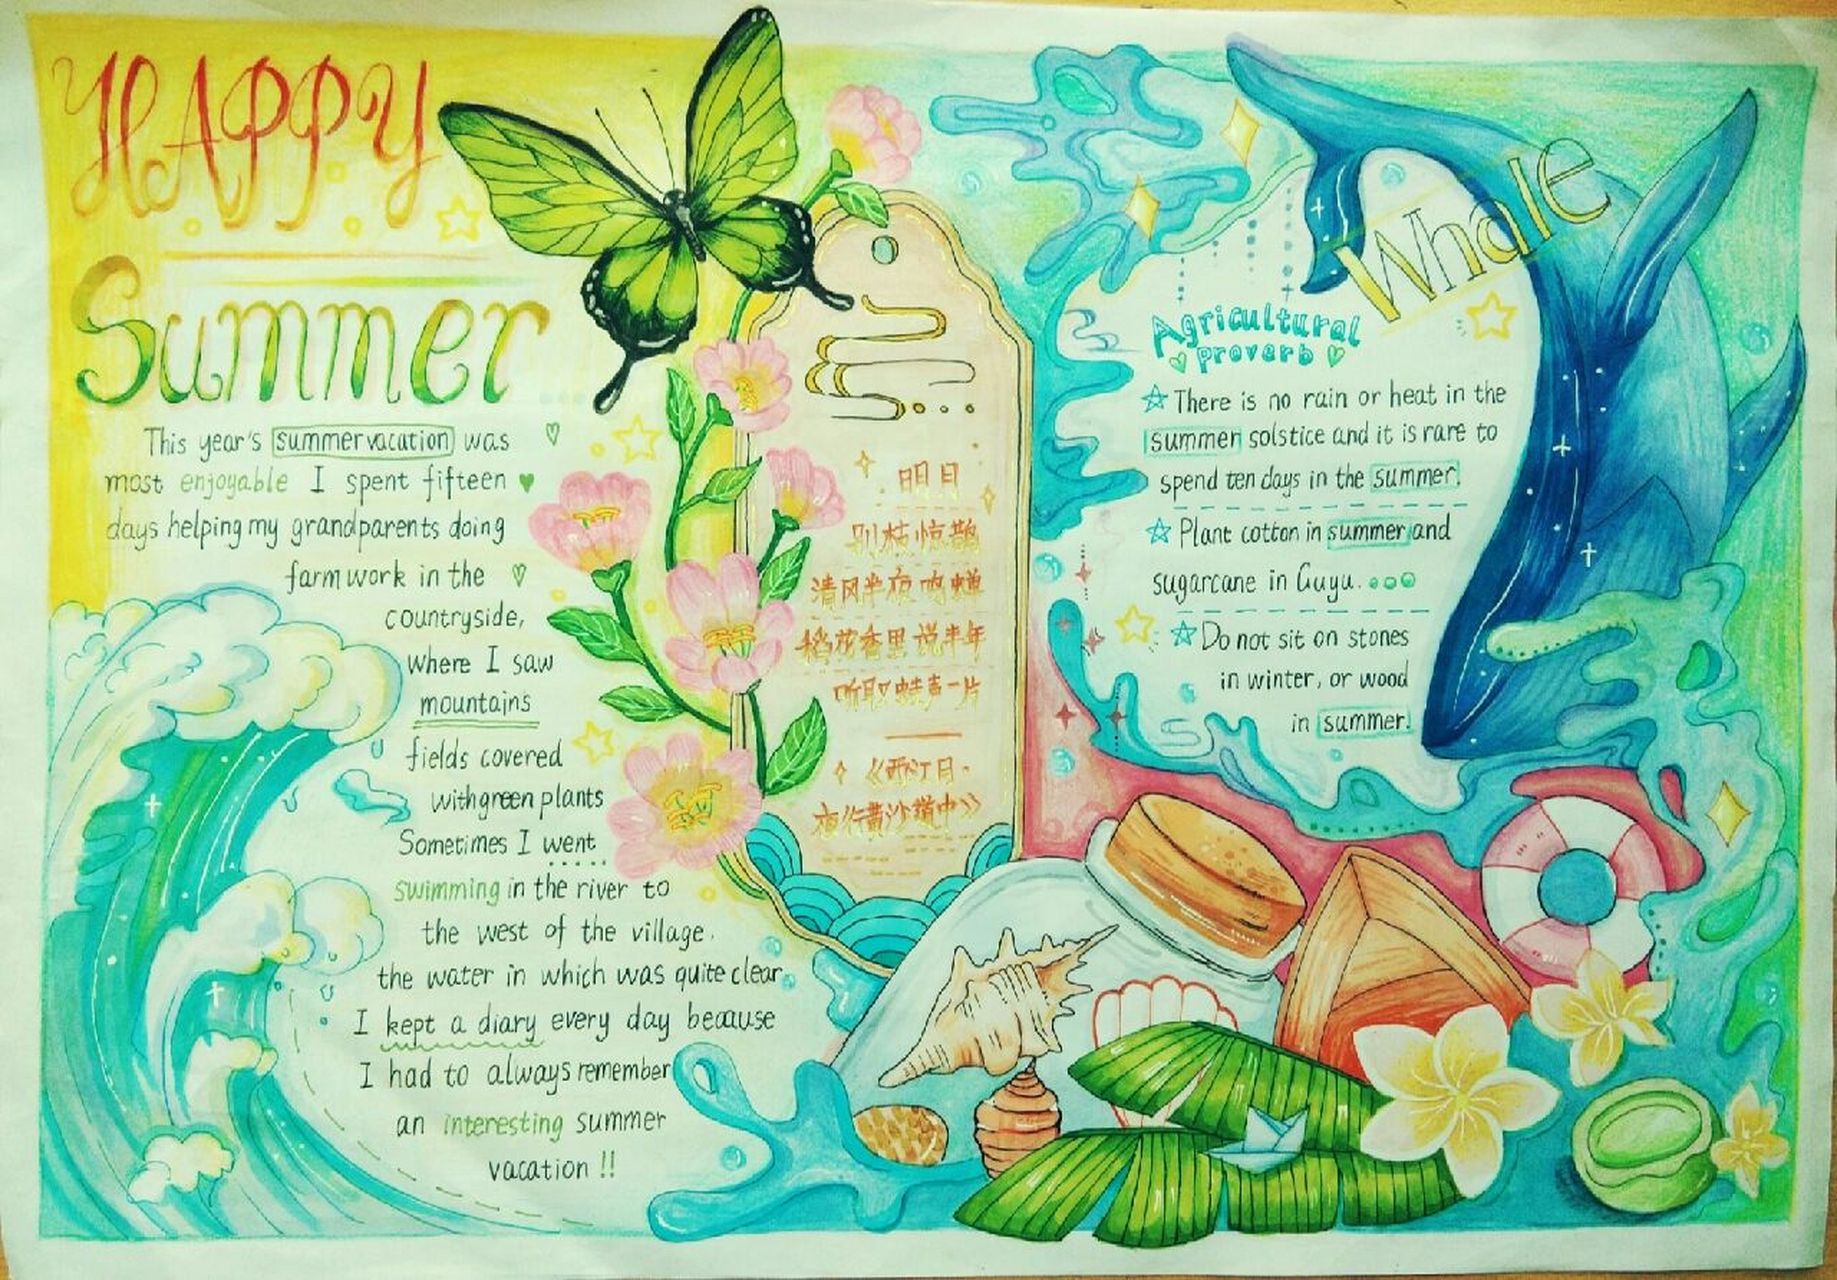 HAPPY
Summer
This year's summer vacation was
most enjoyable I spent fifteen
days helping my grandparents doing
farm work in the
countryside,
where I saw
mountains
fields covered
with green plants
Sometimes I went
swimming in the river to
the west of the village.
the water in which was quite clear
I kept a diary every day because
I had to always remember
an interesting summer
vacation !!
明月
别枝惊鹊
清风半夜鸣蝉
稻花香里说丰年
听取蛙声一片
《西江月·
夜行黄沙道中》
Whale
Agricultural
proverb
There is no rain or heat in the
summer solstice and it is rare to
spend ten days in the summer.
Plant cotton in summer and
sugarcane in Guyu.
Do not sit on stones
in winter, or wood
in summer.